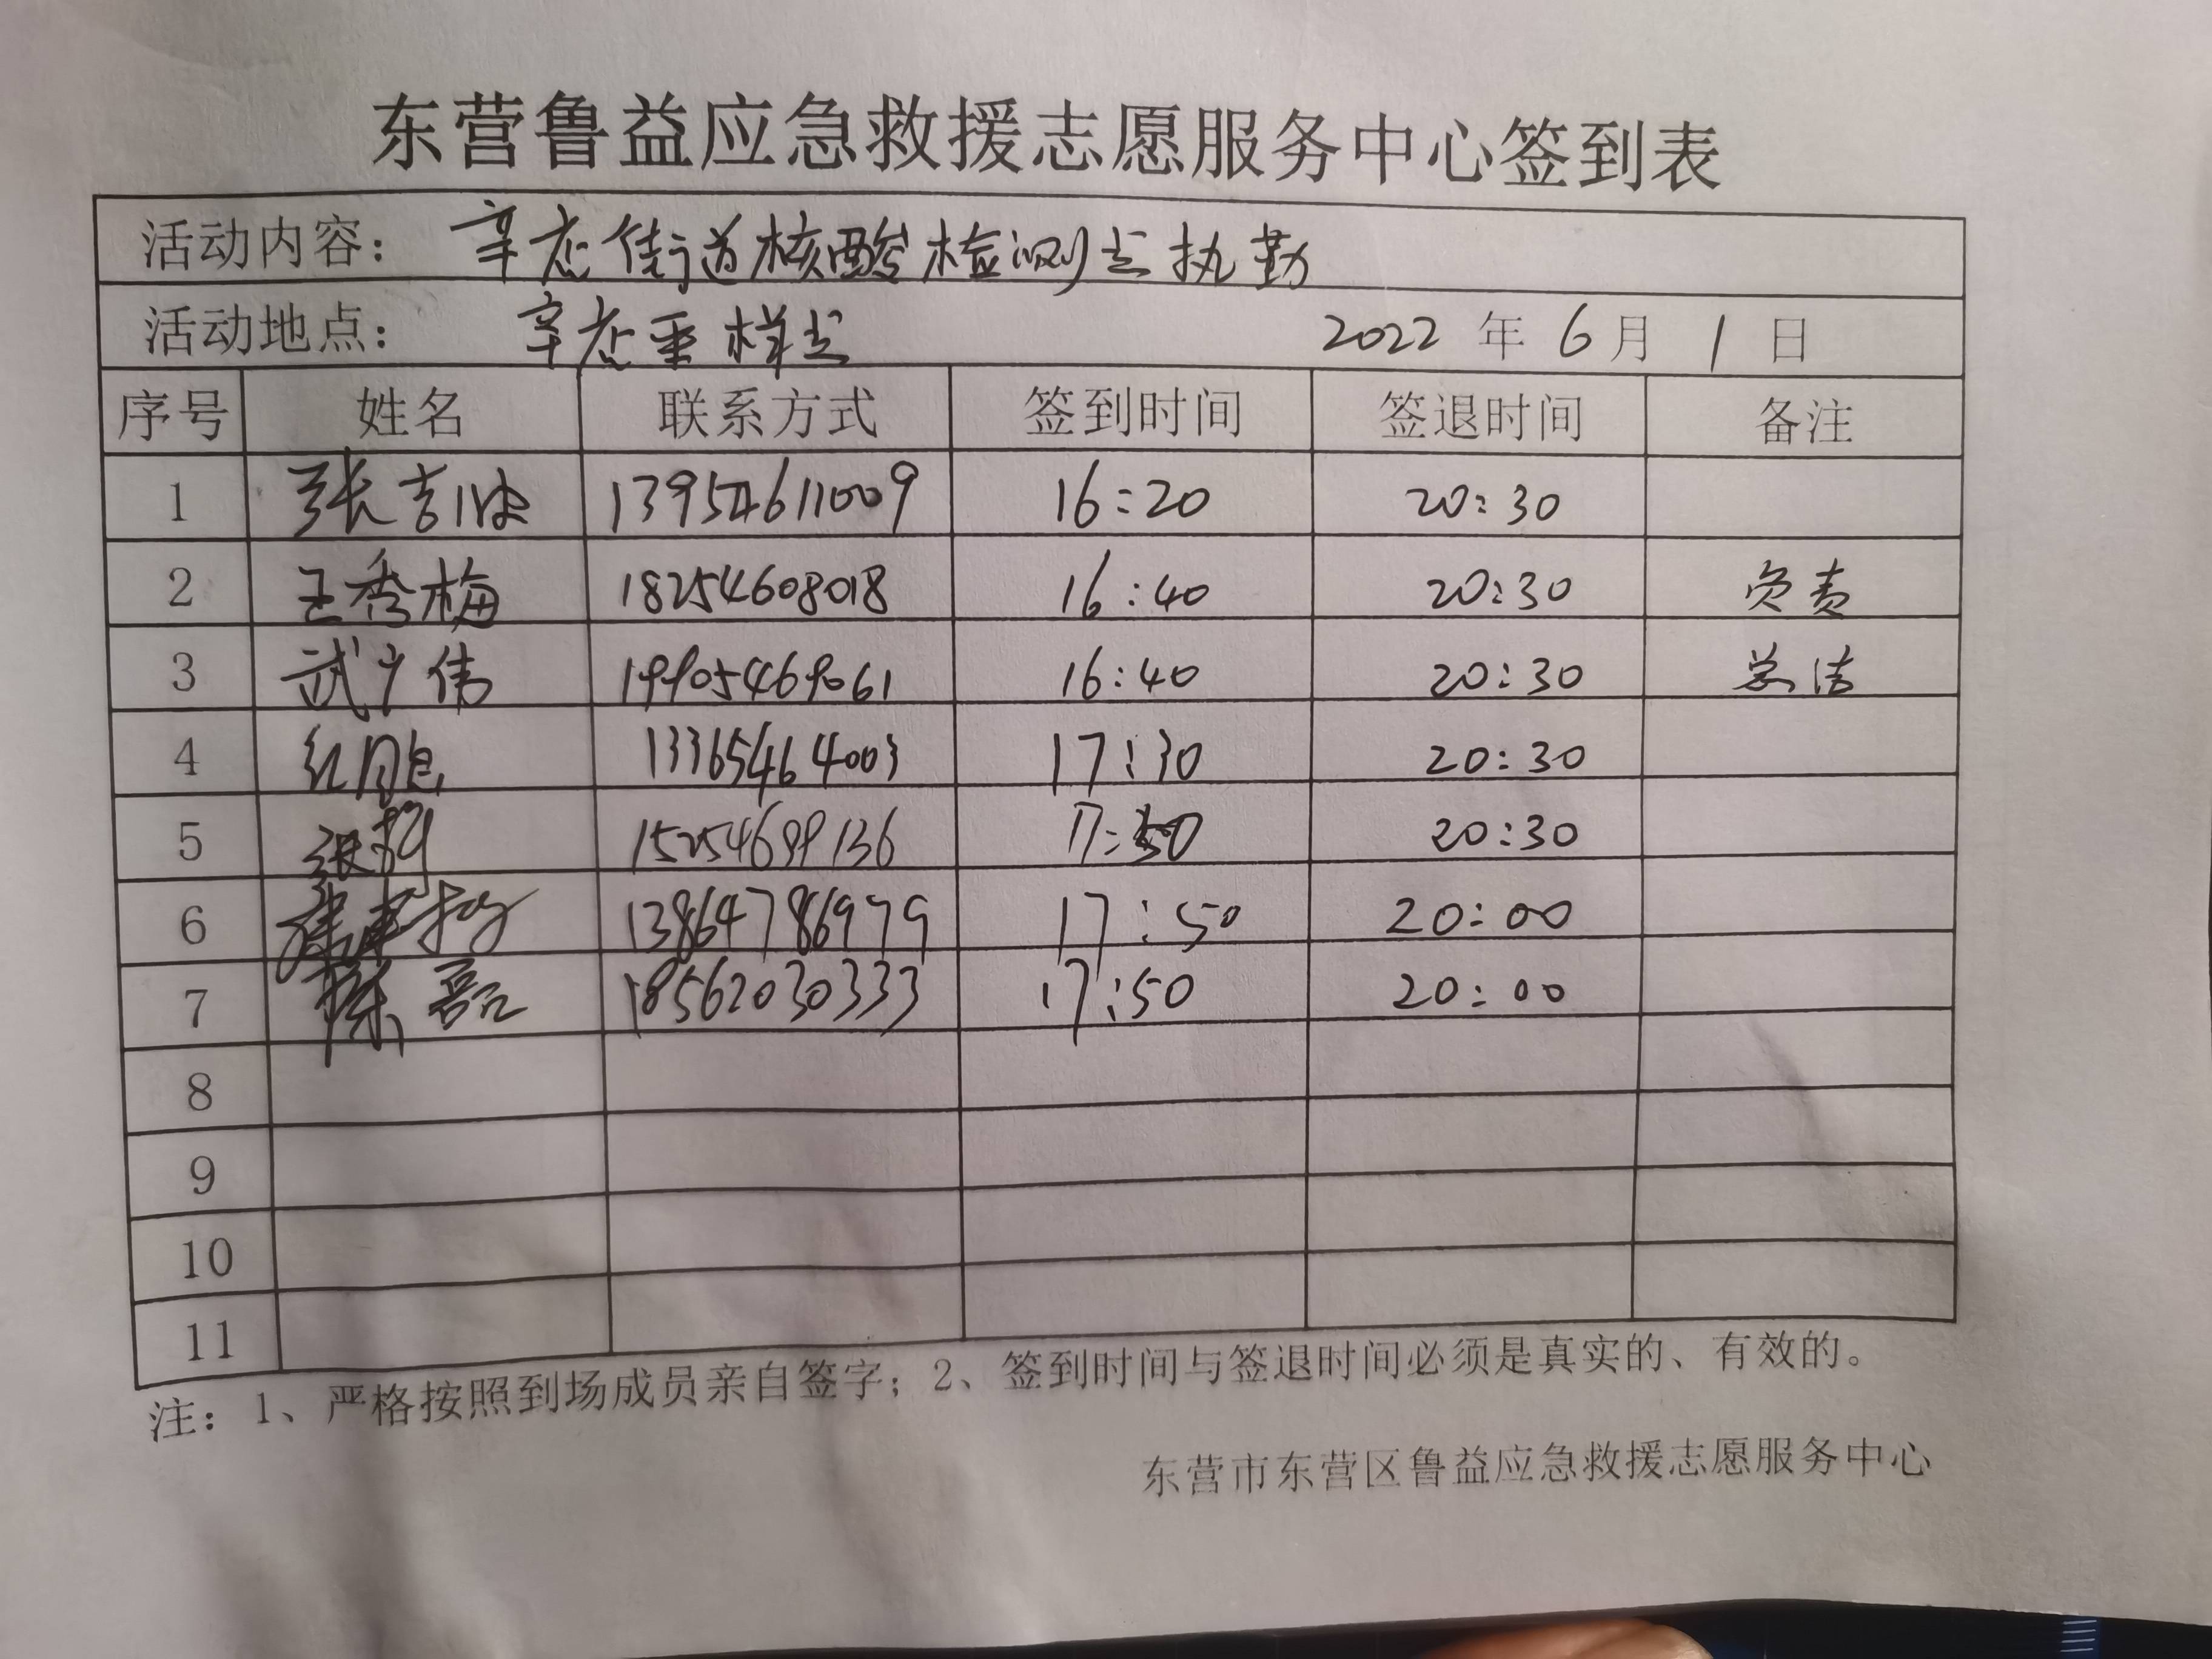 东营鲁益应急救援志愿服务中心签到表
活动内容: 辛店街道核酸检测点执勤
活动地点: 辛店采样点 2022 年 6 月 1 日
序号 姓名 联系方式 签到时间 签退时间 备注
1 张吉波 13954611009 16:20 20:30
2 王秀梅 18254608018 16:40 20:30 负责
3 武广伟 19905469061 16:40 20:30 总结
4 13365464003 17:30 20:30
5 15254699136 17:50 20:30
6 13864786979 17:50 20:00
7 陈磊 18562030333 17:50 20:00
8
9
10
11
注: 1、严格按照到场成员亲自签字; 2、签到时间与签退时间必须是真实的、有效的。
东营市东营区鲁益应急救援志愿服务中心